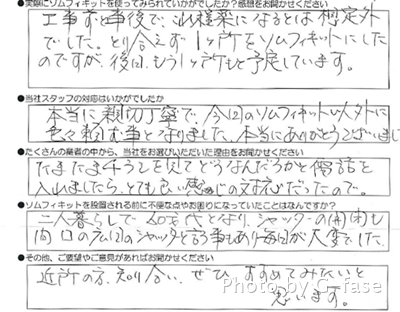 ●実際にソムフィキットを使ってみられていかがでしたか？感想をお聞かせください
工事前と事後で、こんな楽になるとは想定外
でした。とり合えず1ヶ所をソムフィキットにした
のですが、後日、もう1ヶ所もと予定しています。
●当社スタッフの対応はいかがでしたか
本当に親切丁寧で、今回のソムフィキット以外に
色々頼む事となりました。本当にありがとうございまし
●たくさんの業者の中から、当社をお選びいただいた理由をお聞かせください
たまたまチラシを見てどうなんだろうかと電話を
入れましたら、とても良い感じの対応だったので。
●ソムフィキットを設置される前に不便な点やお困りになっていたことはなんですか？
二人暮らしで60才代となり、シャッターの開閉も
間口の広いシャッターと言う事もあり毎日が大変でした。
●その他、ご要望やご意見があればお聞かせください
近所の方、知り合い、ぜひ、すすめてみたいと
思います。
Photo by G-fase